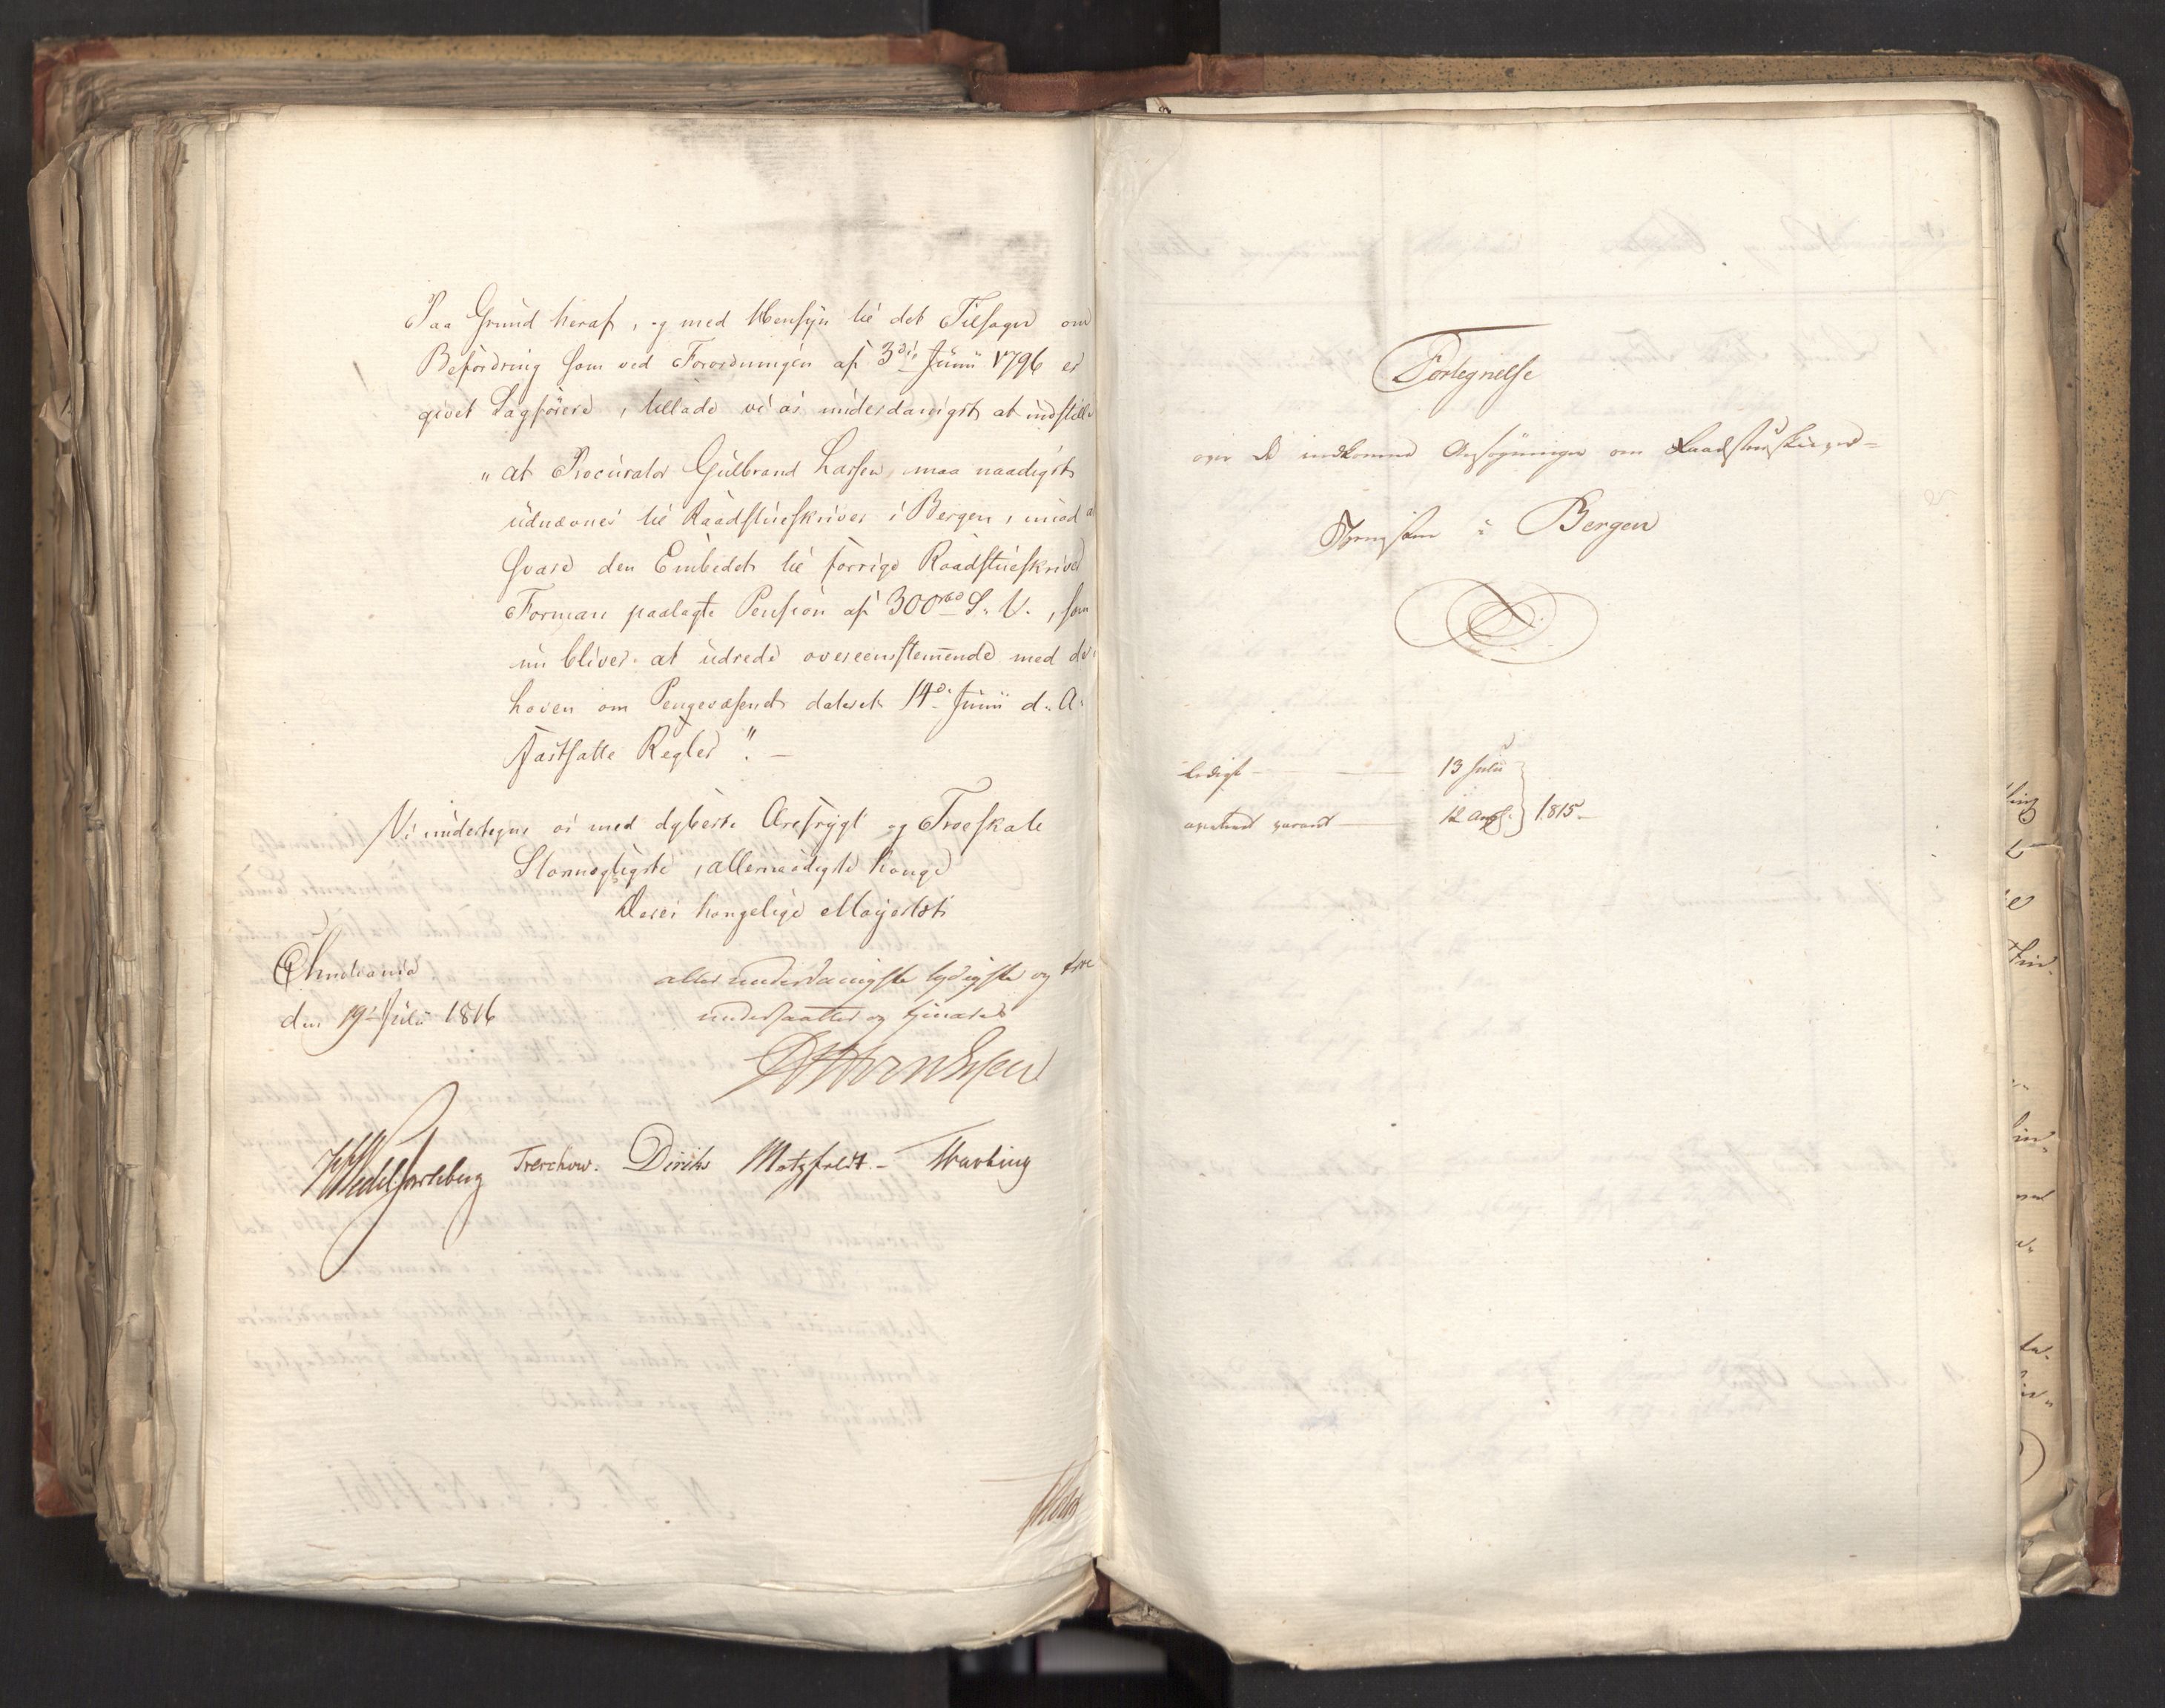 Paa Grund heraf, og med Hensyn til det Tilsagn om
Befordring som ved Forordningen af 3die Junii 1796 er
givet Sagførere, tillade vi os underdanigst at indstille
"at Procurator Gulbrand Larsen, maa naadigst
udnævnes til Raadstueskriver i Bergen, imod at
svare den Embedet til forrige Raadstueskriver
Forman paalagte Pension af 300 rbd S. V., som
nu bliver at udrede overeensstemmende med de i
Loven om Pengevæsenet dateret 14de Junii d. A.
fastsatte Regler". —
Vi undertegne os med dybeste Ærefrygt og Troeskab
Stormægtigste, allernaadigste Konge
Deres Kongelige Majestæts
Christiania
den 19de Julii 1816
allerunderdanigste lydigste og troe
undersaatter og tjenere
Wedel Jarlsberg Treschow. Diriks Motzfeldt. –
Fortegnelse
over de indkomne Ansøgninger om Raadstueskriver-
Tjenesten i Bergen
ledigt — — 13 Julii
averteret vacant — 12 Aug. } 1815. —